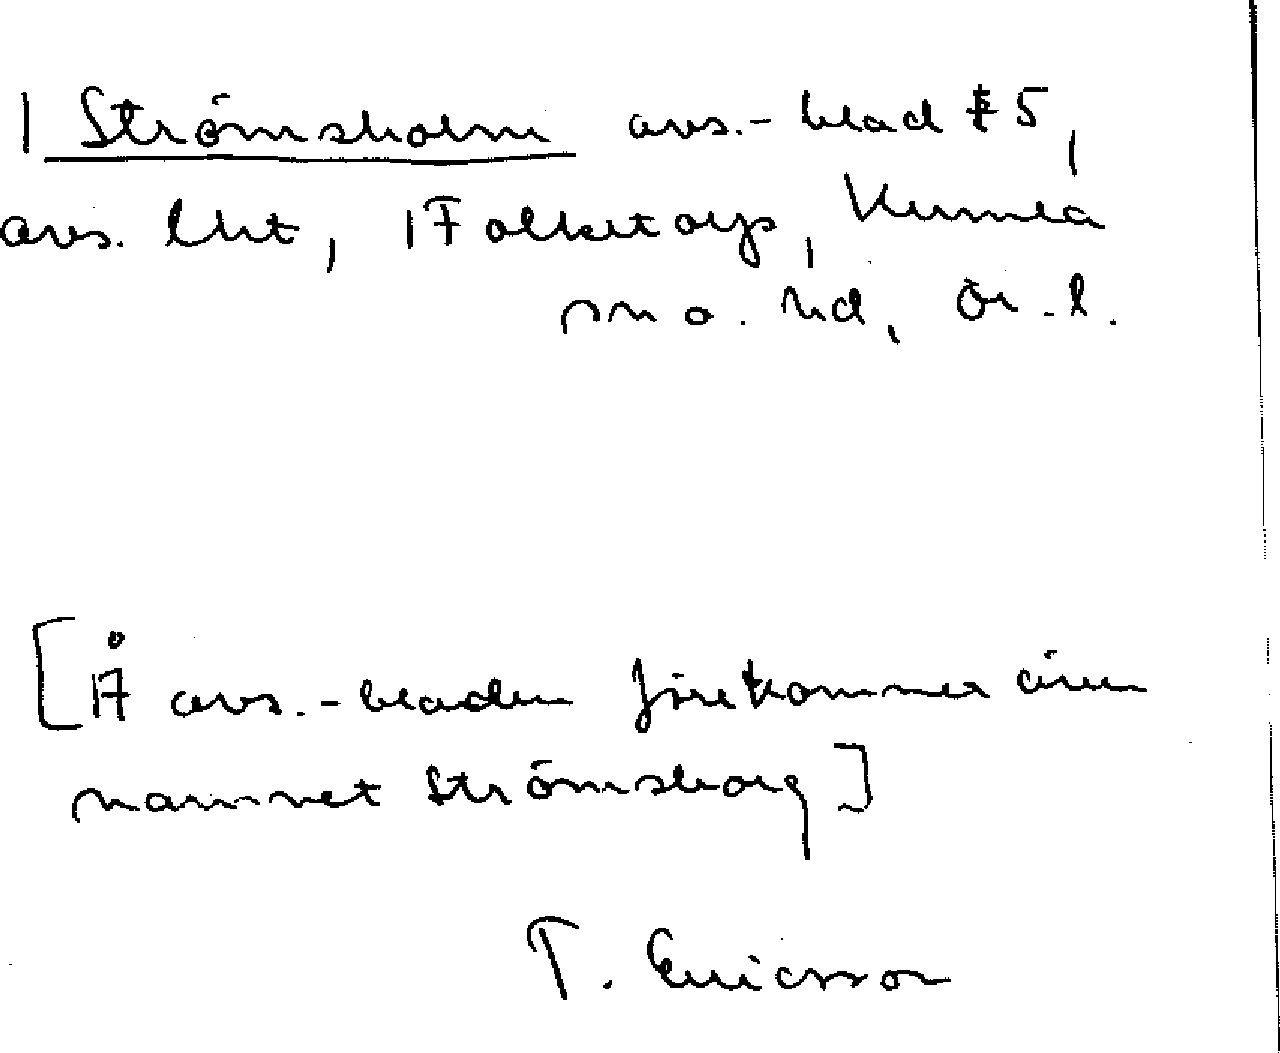 | Strömsholm avs.-blad # 5,
avs. lht, | Folketorp, Kumla
sn o. hd, Ör. l.
[Å avs.-bladen förekommer även
namnet Strömsborg]
T. Ericsson